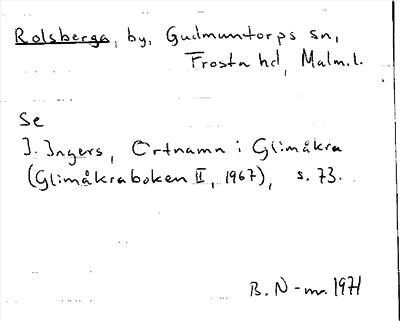 Rolsberga, by, Gudmuntorps sn,
Frosta hd, Malm.l.
Se
I. Ingers, Ortnamn i Glimåkra
(Glimåkraboken II, 1967), s. 73.
B. N-m. 1971